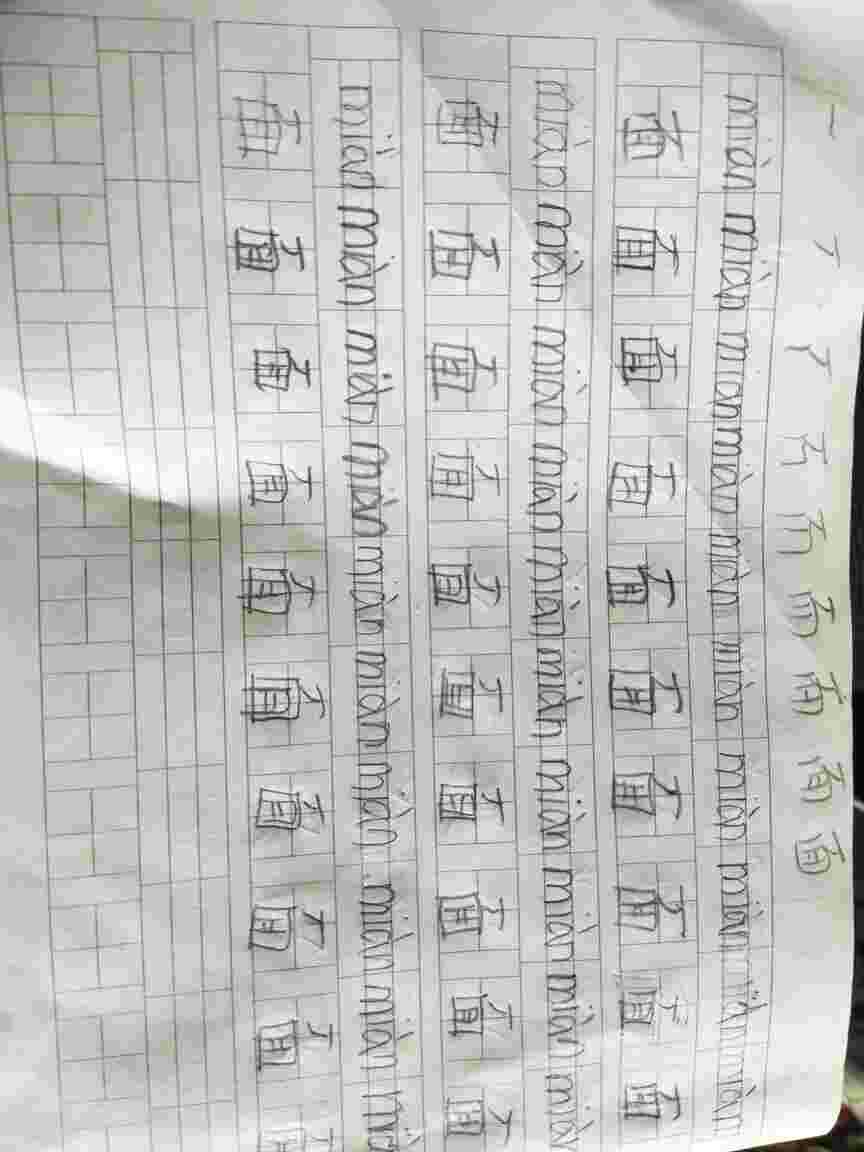 一 丆 面
miàn miàn miàn miàn miàn miàn miàn miàn miàn miàn
面 面 面 面 面 面 面 面 面 面
miàn miàn miàn miàn miàn miàn miàn miàn miàn mià
面 面 面 面 面 面 面 面 面 面
miàn miàn miàn miàn miàn miàn miàn miàn miàn mià
面 面 面 面 面 面 面 面 面 面